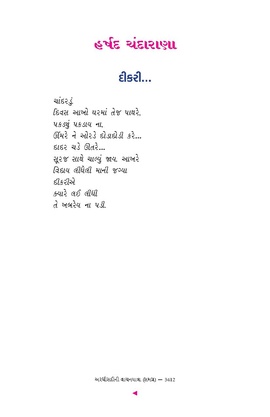 હર્ષદ ચંદારાણા
દીકરી...
ચાંદરડું
દિવસ આખો ઘરમાં તેજ પાથરે,
પકડ્યું પકડાય ના,
ઊંમરે ને ઓરડે દોડાદોડી કરે...
દાદર ચડે ઊતરે...
સૂરજ સાથે ચાલ્યું જાય. આખરે
વિદાય લીધેલી માની જગ્યા
દીકરીએ
ક્યારે લઈ લીધી
તે ખબરેય ના પડી.
અરધીસદીની વાચનયાત્રા (સમગ્ર) — 3612